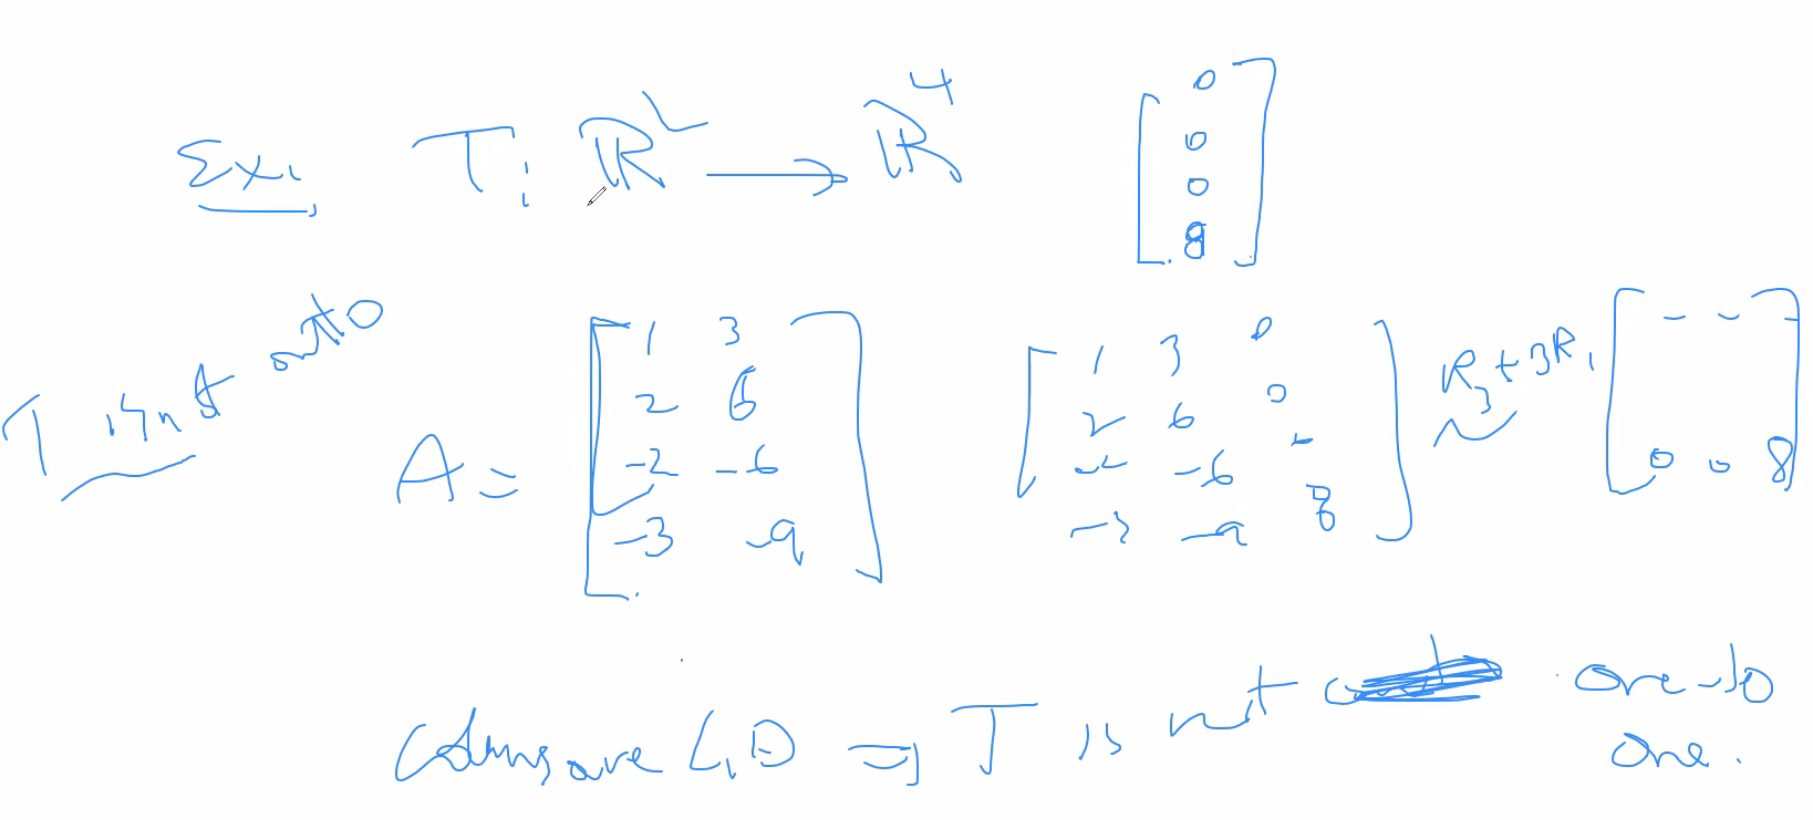 Ex: T: ℝ² → ℝ⁴ [0 0 0 8]
T isn't onto
A = [1 3
2 6
-2 -6
-3 -9]
[1 3 0
2 6 0
-2 -6 0
-3 -9 8]
R₃+3R₁
~
[- - -
0 0 8]
Columns are L.D ⇒ T is not one-to
one.